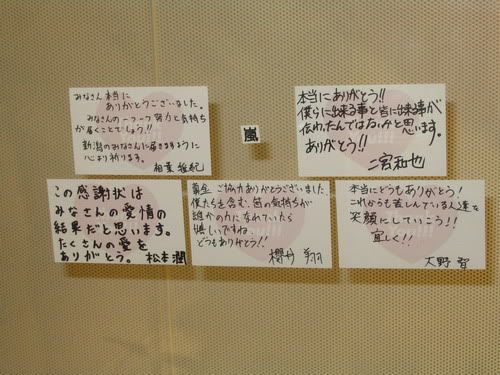 みなさん本当に
ありがとうございました。
みなさんの一つ一つ努力と気持ち
が届くことでしょう!!
新潟のみなさんに届きますように
心より祈ります。
相葉雅紀
嵐
本当にありがとう!!
僕らに出来る事と皆に出来る事が
伝わったんではないかと思います。
ありがとう!!
二宮和也
この感謝状は
みなさんの愛情の
結果だと思います。
たくさんの愛を
ありがとう。 松本潤
募金 ご協力ありがとうございました
僕たちを含む、皆の気持ちが
誰かの力になれていたら
嬉しいですね
どうもありがとう!!
櫻井 翔
本当にどうもありがとう!
これからも苦しんでいる人達を
笑顔にしていこう!!
宜しく!!
大野 智